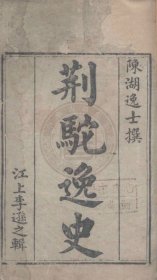 陳湖逸士撰
荆駝逸史
江上李遜之輯